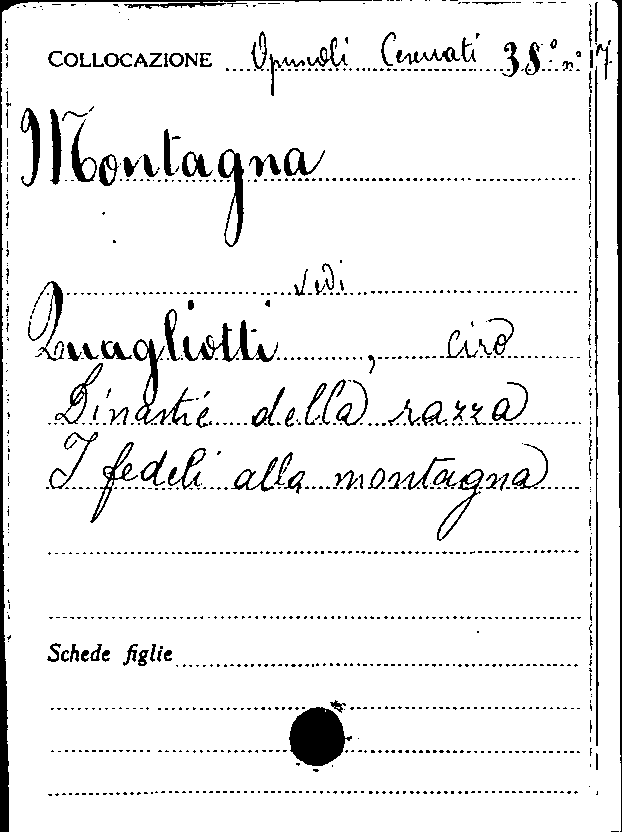 COLLOCAZIONE Opuscoli Cesenati 38.° n° 17
Montagna
vedi
Quagliotti, Ciro
Dinastie della razza
I fedeli alla montagna
Schede figlie